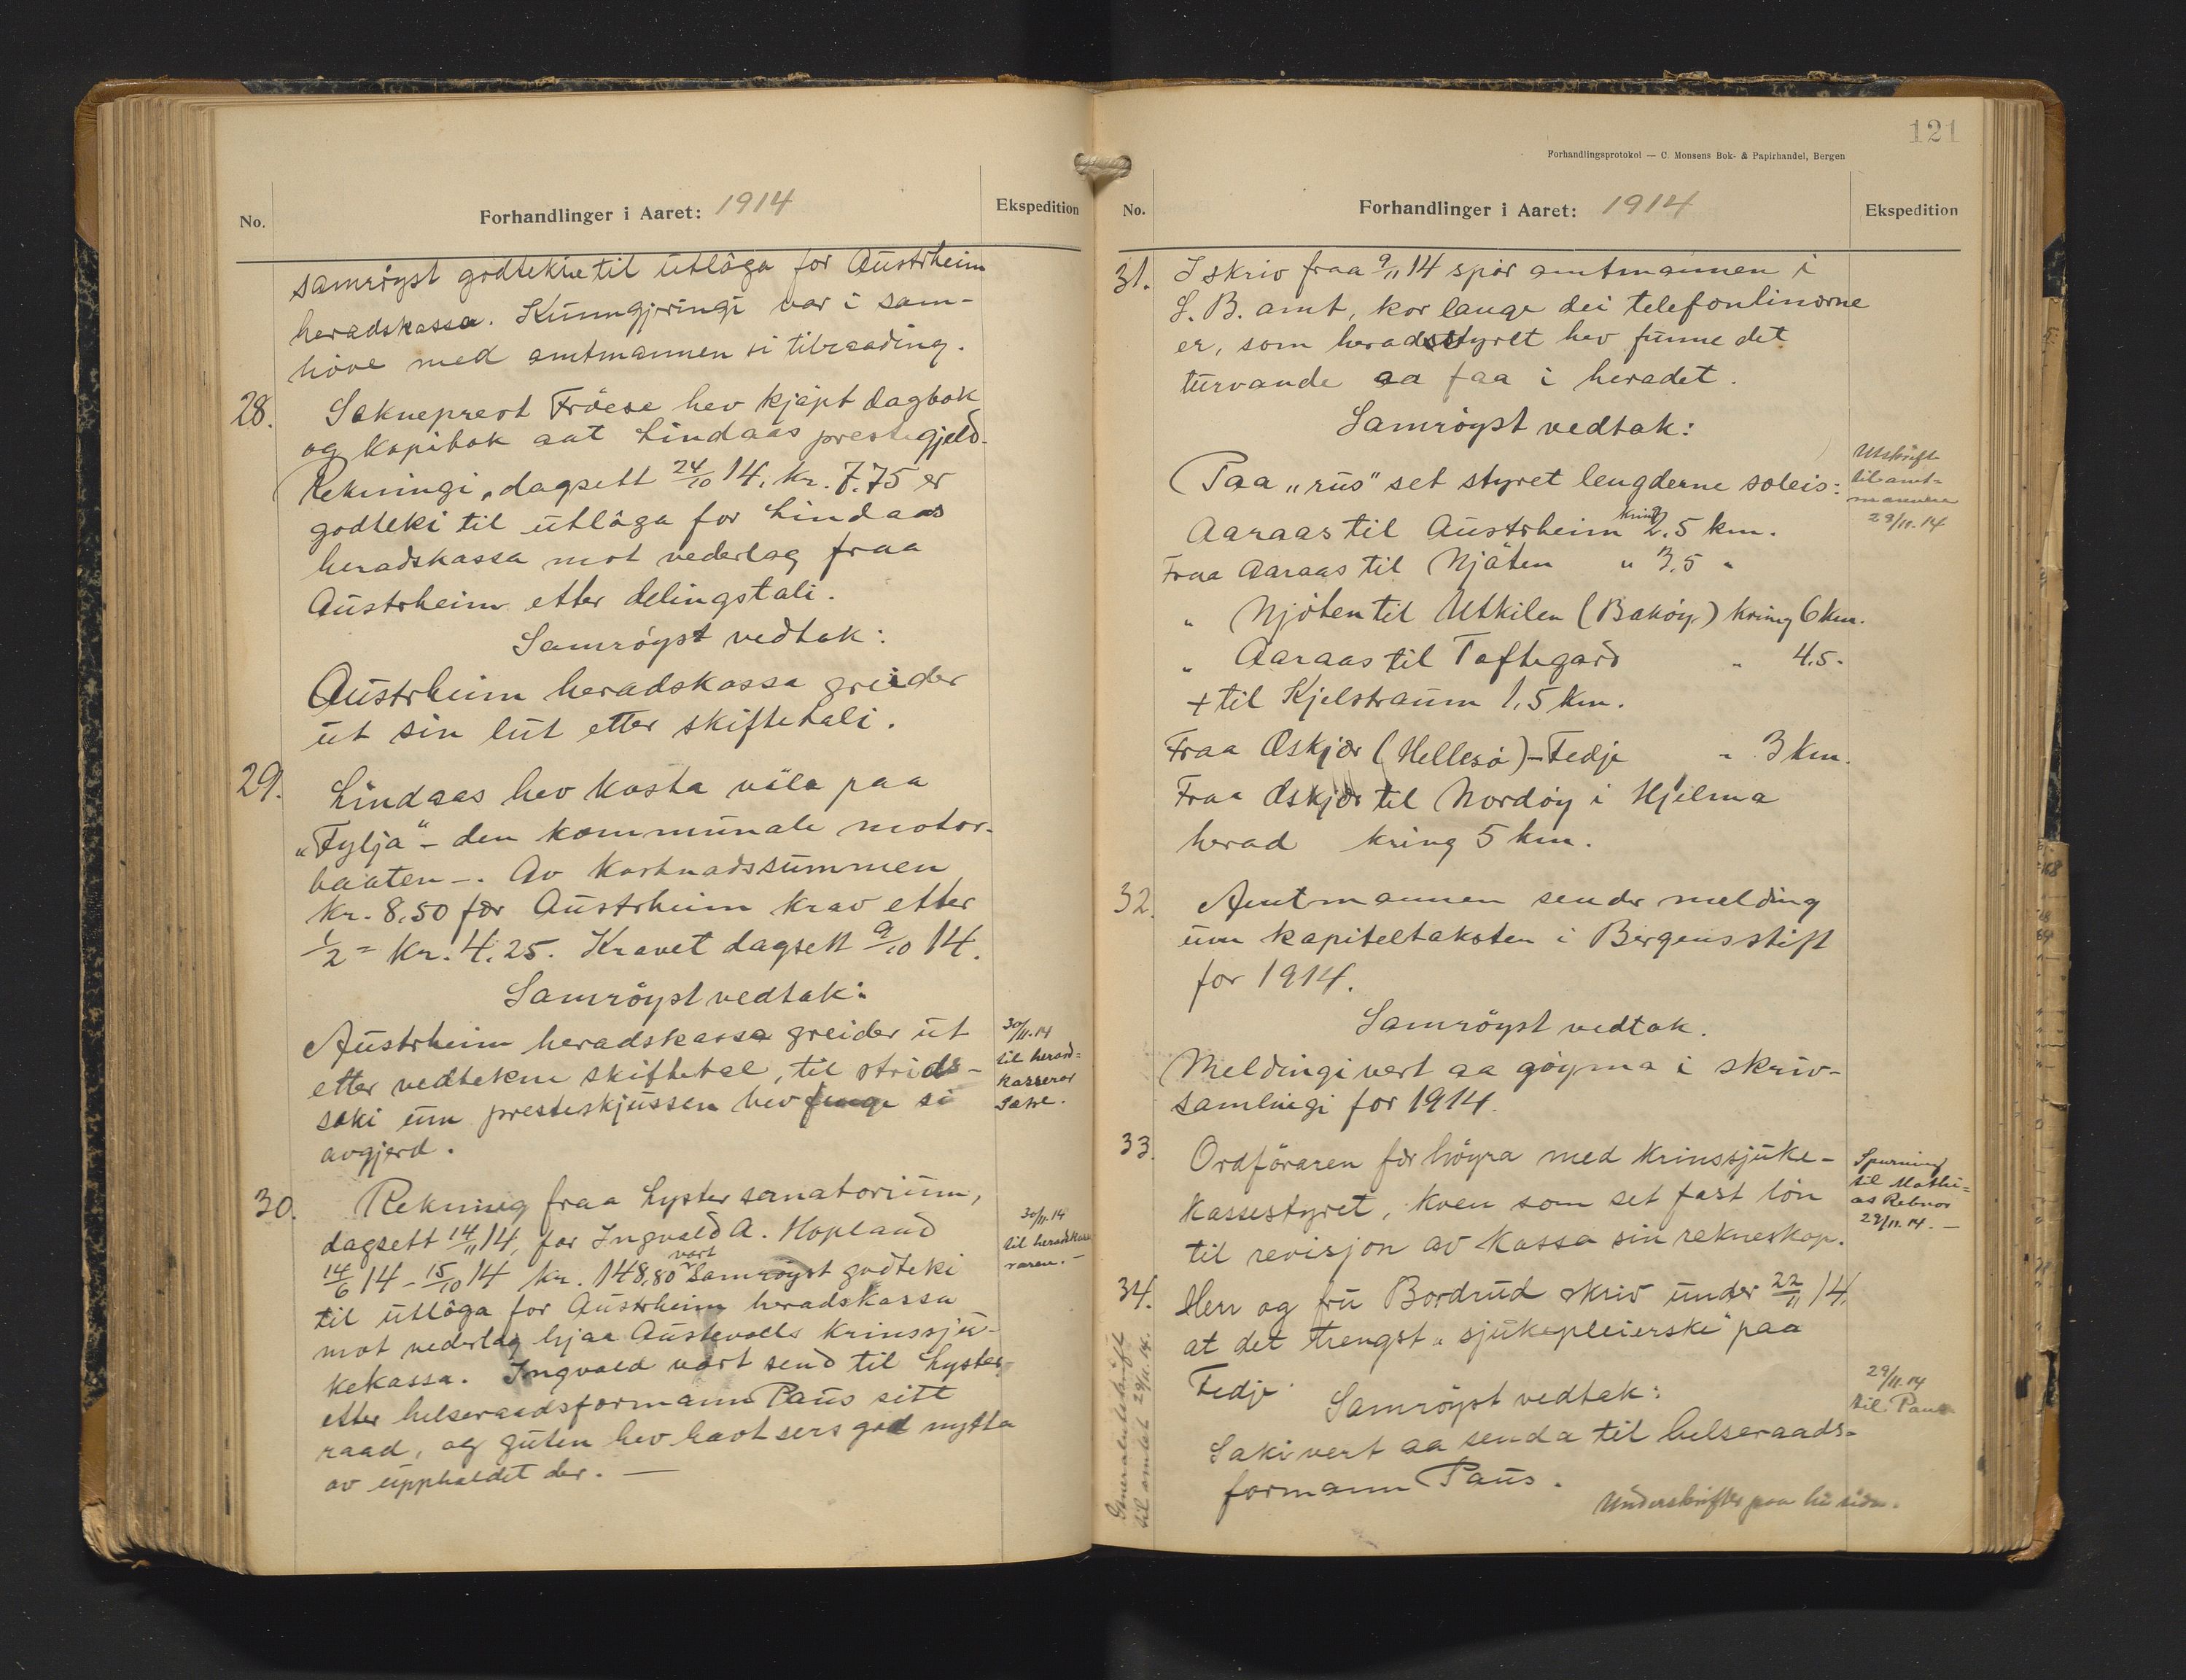 No.
Forhandlinger i Aaret: 1914
Ekspedition
samröyst godtekne til utlöga for Austrheim
heradskassa. Kunngjeringi var i sam-
höve med amtmannen si tilraading.
28.
Sokneprest Fröese hev kjöpt dagbok
og kopibok aat Lindaas prestegjeld.
Rekningi, dagsett 24/10 14, kr. 7.75 er
godteki til utlöga for Lindaas
heradskassa mot vederlag fraa
Austrheim etter delingstali.
Samröyst vedtak:
Austrheim heradskassa greider
ut sin lut etter skiftetali.
29.
Lindaas hev kosta völa paa
"Fylja" - den kommunale motor-
baaten -. Av kostnadssummen
kr. 8,50 fær Austrheim krav etter
1/2 = kr. 4.25. Kravet dagsett 9/10 14.
Samröyst vedtak:
Austrheim heradskassa greider ut
etter vedtekne skiftetal, til strids-
saki um presteskjussen hev fenge si
avgjerd.
30/11.14
til herad=
kasserer
Sætre.
30.
Rekning fraa Lyster sanatorium,
dagsett 14/11 14, for Ingvald A. Hopland
14/6 14 - 15/10 14 kr. 148,80 vart samröyst godteki
til utlöga for Austrheim heradskassa
mot vederlag hjaa Austevolls krinssju-
kekassa. Ingvald vart send til Lyster
etter helseraadsformann Paus sitt
raad, og guten hev havt sers god nytta
av upphaldet der. —
30/11.14
til heradskas
raren. —
121
Forhandlingsprotokol — C. Monsens Bok- & Papirhandel, Bergen
No.
Forhandlinger i Aaret: 1914
Ekspedition
31.
I skriv fraa 9/11 14 spör amtmannen i
S. B. amt, kor lange dei telefonlinorne
er, som heradsstyret hev funne det
turvande aa faa i heradet.
Samröyst vedtak:
Paa "rus" set styret lengderne soleis:
Utskrift
til amt=
mannen
29/11.14
Aaraas til Austrheim kring 2.5 km.
Fraa Aaraas til Njöten " 3,5 "
" Njöten til Utkilen (Baköy) kring 6 km.
" Aaraas til Toftegard " 4.5.
+ til Kjelstraum 1,5 km.
Fraa Oskjær (Hellesö) - Fedje " 3 km.
Fraa Oskjær til Nordöy i Hjelma
herad kring 5 km.
32.
Amtmannen sender melding
um kapiteltaksten i Bergens stift
for 1914.
Samröyst vedtak.
Meldingi vert aa göyma i skriv-
samlingi for 1914.
33.
Ordföraren fær höyra med krinssjuke-
kassestyret, kven som set fast lön
til revisjon av kassa sin rekneskap.
Spurning
til Mathi=
as Rebnor
29/11.14. —
34.
Herr og fru Bordrud skriv under 22/11 14,
at det trengst "sjukepleierske" paa
Fedje.
Samröyst vedtak:
Saki vert aa senda til helseraads-
formann Paus.
29/11.14
til Paus
Generalutskrift
til amtet 29/11.14.
Underskrifter paa hi sida.